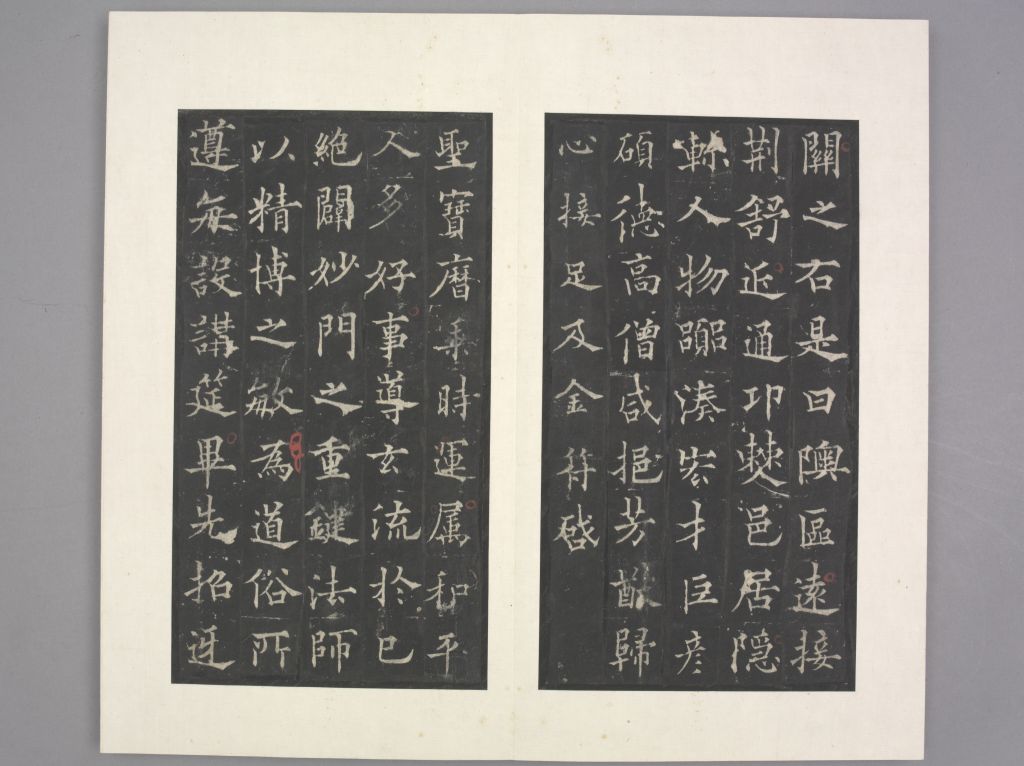 關之右是曰隩區遠接
荆舒近通邛僰邑居隱
軫人物嚻湊宏才巨彦
碩德高僧咸挹芳猷歸
心接足及金符啓
聖寶曆乘時運属和平
人多好事導玄流於已
絶闢妙門之重鍵法師
以精博之敏為道俗所
遵每設講筵畢先招迓